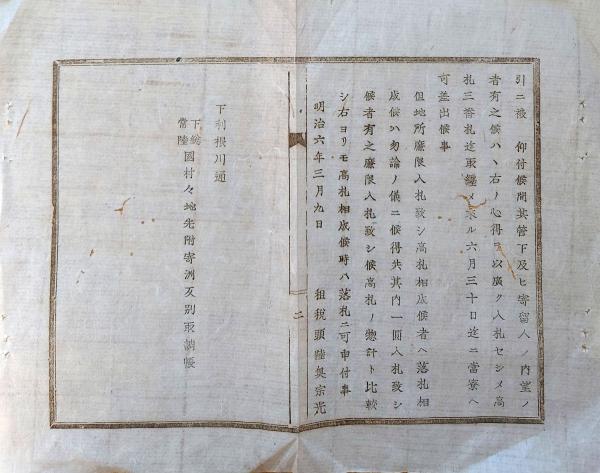 引ニ被　仰付候間其管下及ヒ寄留人ノ内望ノ
者有之候ハヽ右ノ心得ヲ以廣ク入札セシメ高
札三番札迄取纏メ来ル六月三十日迄ニ當寮ヘ
可差出候事
但地所厘限入札致シ高札相成候者ヘ落札相
成候ハ勿論ノ儀ニ候得共其内一圓入札致シ
候者有之厘限入札致シ候高札ノ惣計ト比較
シ右ヨリモ高札相成候時ハ落札ニ可申付事
明治六年三月九日
租税頭陸奥宗光
二
下利根川通
下総
常陸
國村々地先附寄洲反別取調帳